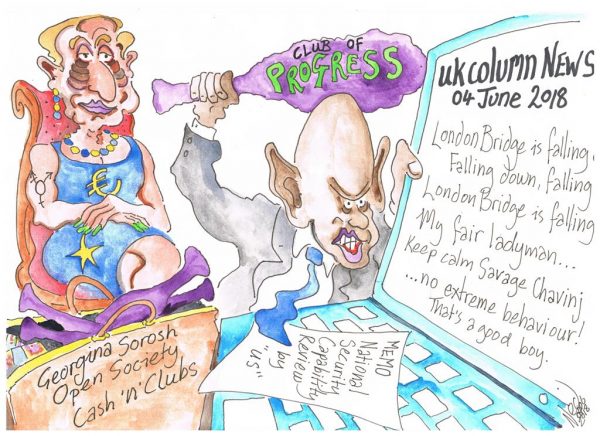 CLUB OF
PROGRESS
UK COLUMN NEWS
04 JUNE 2018
London Bridge is falling,
Falling down, falling
London Bridge is falling
My fair ladyman...
Keep calm Savage Chavinj
...no extreme behaviour!
That's a good boy.
€
Georgina Sorosh
Open Society
Cash 'n' Clubs
MEMO
National
Security
Capability
Review
by
"us"